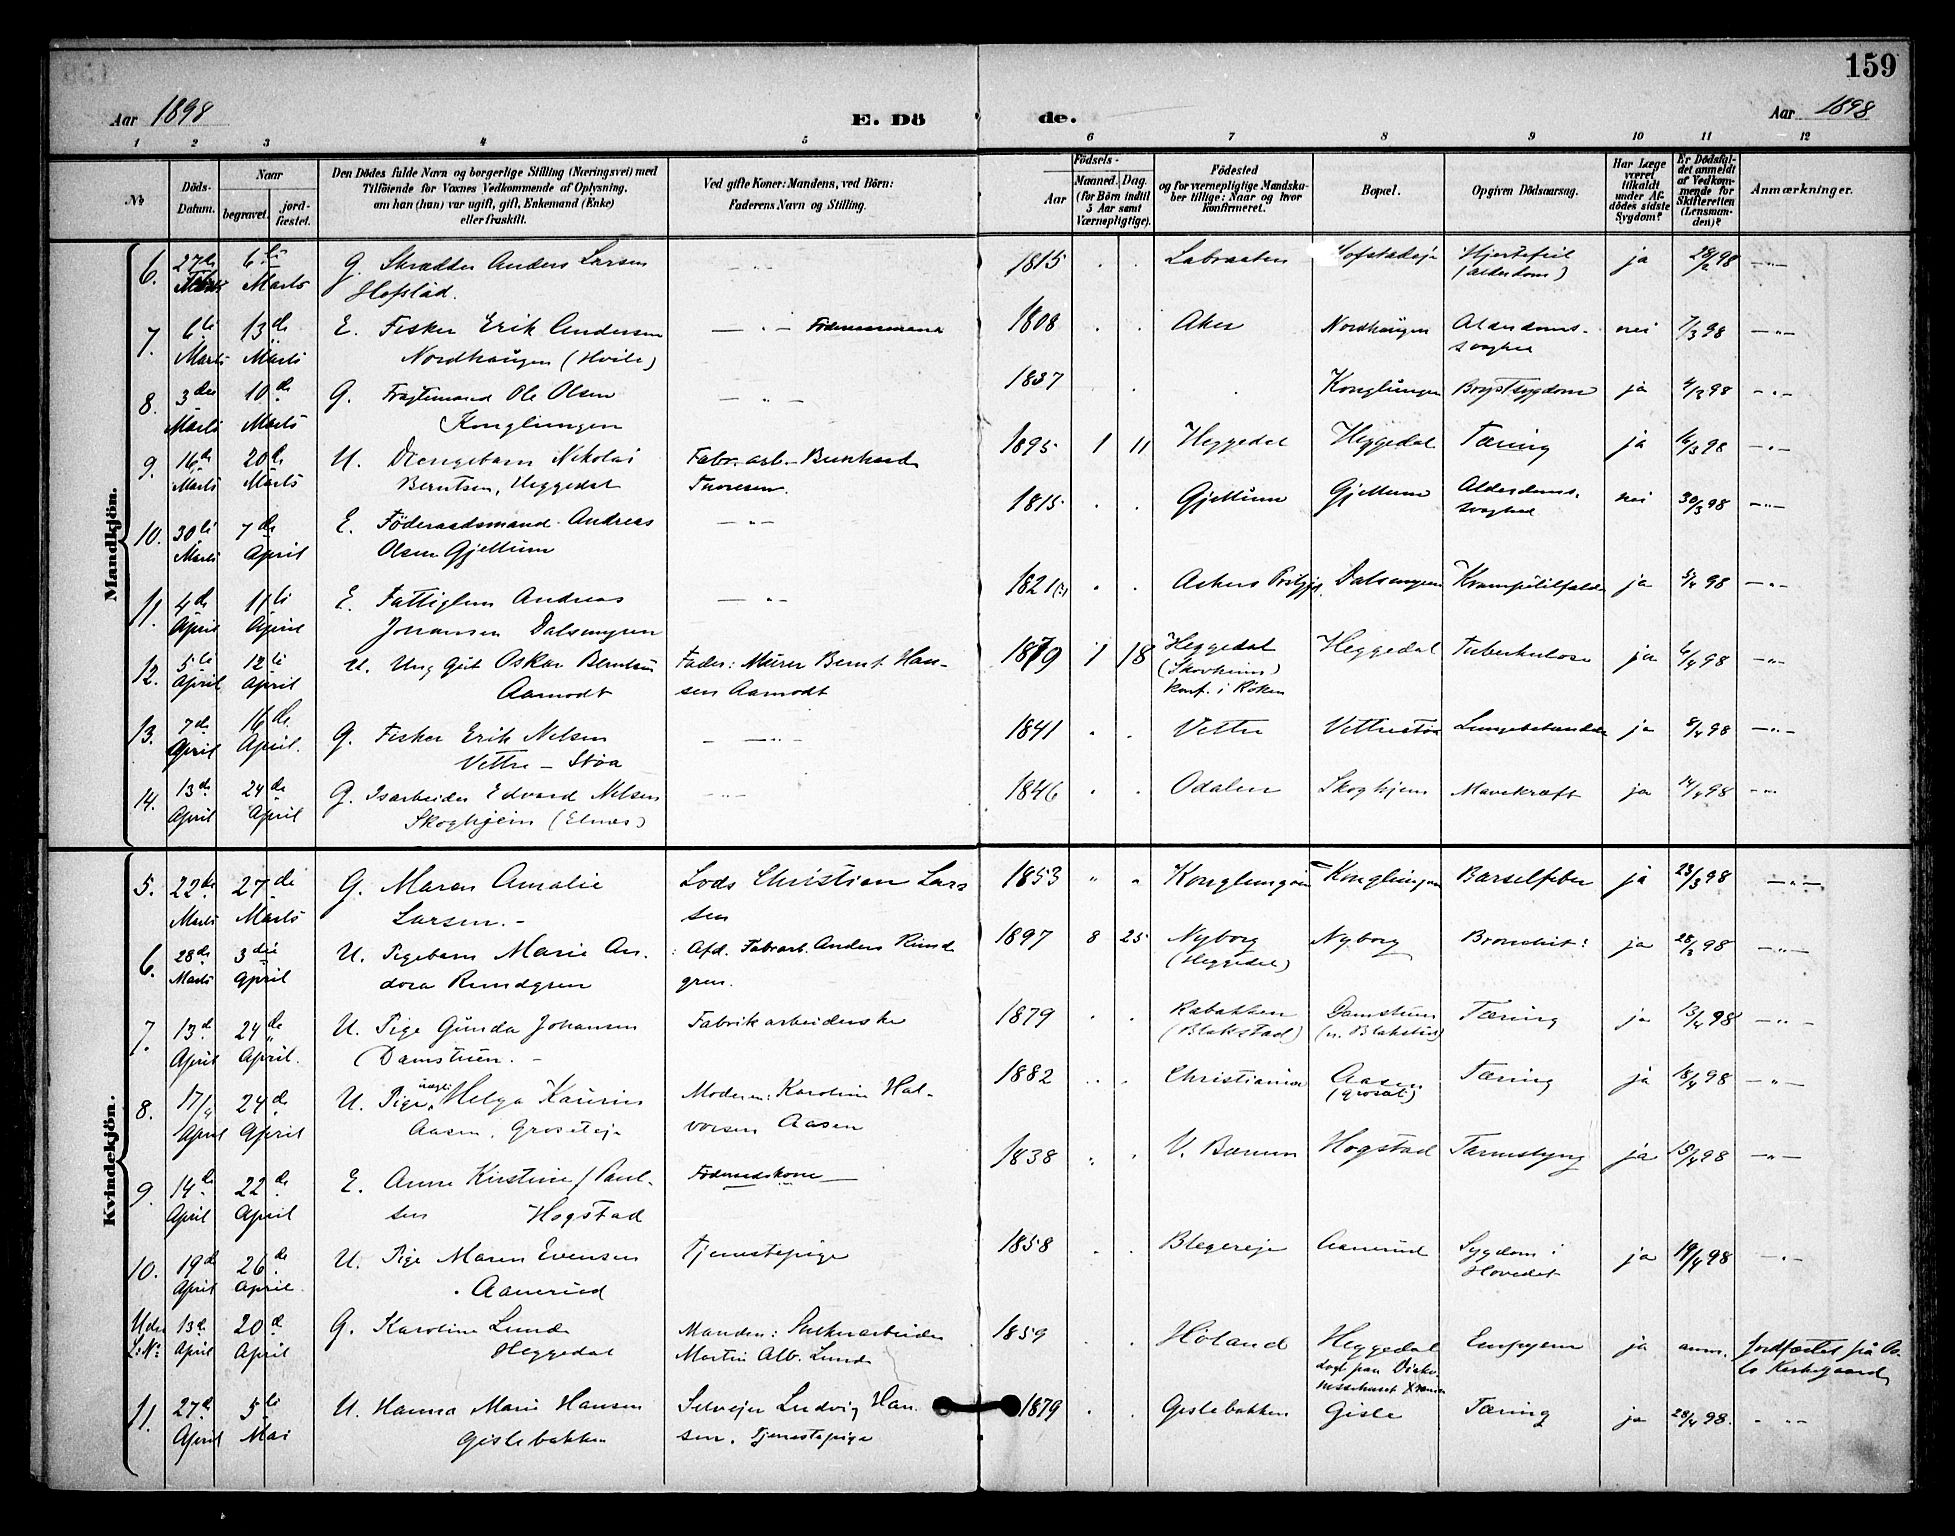 159
Aar 1898 E. Dö de. Aar 1898
1 2 3 4 5 6 7 8 9 10 11 12
No
Döds-Datum.
Naar
begravet.
jord-fæstet.
Den Dödes fulde Navn og borgerlige Stilling (Næringsvei) med
Tilföiende for Voxnes Vedkommende af Oplysning,
om han (hun) var ugift, gift, Enkemand (Enke)
eller fraskilt.
Ved gifte Koner: Mandens, ved Börn:
Faderens Navn og Stilling.
Födsels-
Aar
Maaned. Dag.
(for Börn indtil
5 Aar samt
Værnepligtige).
Födested
og for værnepligtige Mandska-
ber tillige: Naar og hvor
konfirmeret.
Bopæl.
Opgiven Dödsaarsag.
Har Læge
været
tilkaldt
under Af-
dödes sidste
Sygdom?
Er Dödsfal-
det anmeldt
af Vedkom-
mende for
Skifteretten
(Lensman-
den)?
Anmærkninger.
Mandkjön.
6. 27de 6te G. Skrædder Anders Larsen — " — 1815 . . Labraaten Hofstadeje Hjertefeil ja 28/2 98 — " —
Marts Hofstad. (Alderdom)
7. 6te 13de E. Fisker Erik Andersen — " — 1808 . . Aker Nordhaugen Alderdoms- nei 7/3 98 — " —
Marts Marts Nordhaugen (Hvile) svaghed
8. 3die 10de G. Fragtemand Ole Olsen — " — 1837 . . . Konglungen Brystsygdom ja 4/3 98 — " —
Marts Marts Konglungen
9. 16de 20de U. Drengebarn Nikolai Fabr. arb. Bernhard 1895 1 11 Heggedal Heggedal Tæring ja 16/3 98 — " —
Marts Marts Berntsen, Heggedal Thoresen.
10. 30te 7de E. Föderaadsmand Andreas — " — 1815 . . Gjellum Gjellum Alderdoms- nei 30/3 98 — " —
Marts April Olsen Gjellum svaghed
11. 4de 11te E. Fattiglem Andreas — " — 1821 . . Askers Prstgjd. Dalsengen Krampetilfælde ja 5/4 98 — " —
April April Johansen Dalsengen
12. 5te 12te U. Ung Gut Oskar Berntsen Fader: Murer Bernt Han- 1879 1 18 Heggedal Heggedal Tuberkulose ja 6/4 98 — " —
April April Aamodt sen Aamodt (Skovheim)
konf. i Röken
13. 7de 16de G. Fisker Erik Nelsen — " — 1841 . . Vettre Vettrestöa ja 8/4 98 — " —
April April. Vettre - Stöa
14. 13de 24de G. Isarbeider Edvard Nelsen — " — 1846 . . Odalen Skoghjem Mavekræft ja 14/4 98 — " —
April April Skoghjem (Elnes)
Kvindekjön.
5. 22de 27de G. Maren Amalie Lods Christian Lar- 1853 " " Konglungen Konglungen Barselfeber ja 23/3 98 — " —
Marts Marts Larsen. - sen
6. 28de 3die U. Pigebarn Marie An- Afd. Fabrarb. Anders Rund- 1897 8 25 Nyborg Nyborg Bronchit: ja 28/3 98 — " —
Marts April dora Rundgren gren. (Heggedal)
7. 13de 24de U. Pige Gunda Johansen Fabrikarbeiderske 1879 . . Rabakken Damstuen Tæring ja 15/4 98 — " —
April April. (Damstuen. - (Blakstad) (n. Blakstad)
8. 17/4 24de U. Pige, uægte Helga Kaurin Moderen: Karoline Hal- 1882 . . Christiania Aasen Tæring ja 18/4 98 — " —
April April Aasen, Groseteje vorsen Aasen (Groset)
9. 14de 22de E. Anne Kirstine Paul- Föderaadskone — 1838 . . V. Bærum Hogstad Tarmslyng ja 15/4 98 — " —
April April sen Hogstad
10. 19de 26de U. Pige Maren Evensen Tjenestepige 1858 . . Blegereje Aanerud Sygdom i ja 19/4 98 — " —
April April . Aanerud Hovedet
Uden 13de 20de G. Karoline Lund Manden: 1859 . . Höland Heggedal Empyem ja anm. Jordfæstet på Os-
L. No: April April Heggedal Martin Alb. Lund lo Kirkegaard
11. 27de 5te U. Hanna Marie Hansen Selveier Ludvig Han- 1879 . . Gislebakken Gisle Tæring ja 28/4 98. " "
April Mai Gislebakken sen. Tjenestepige